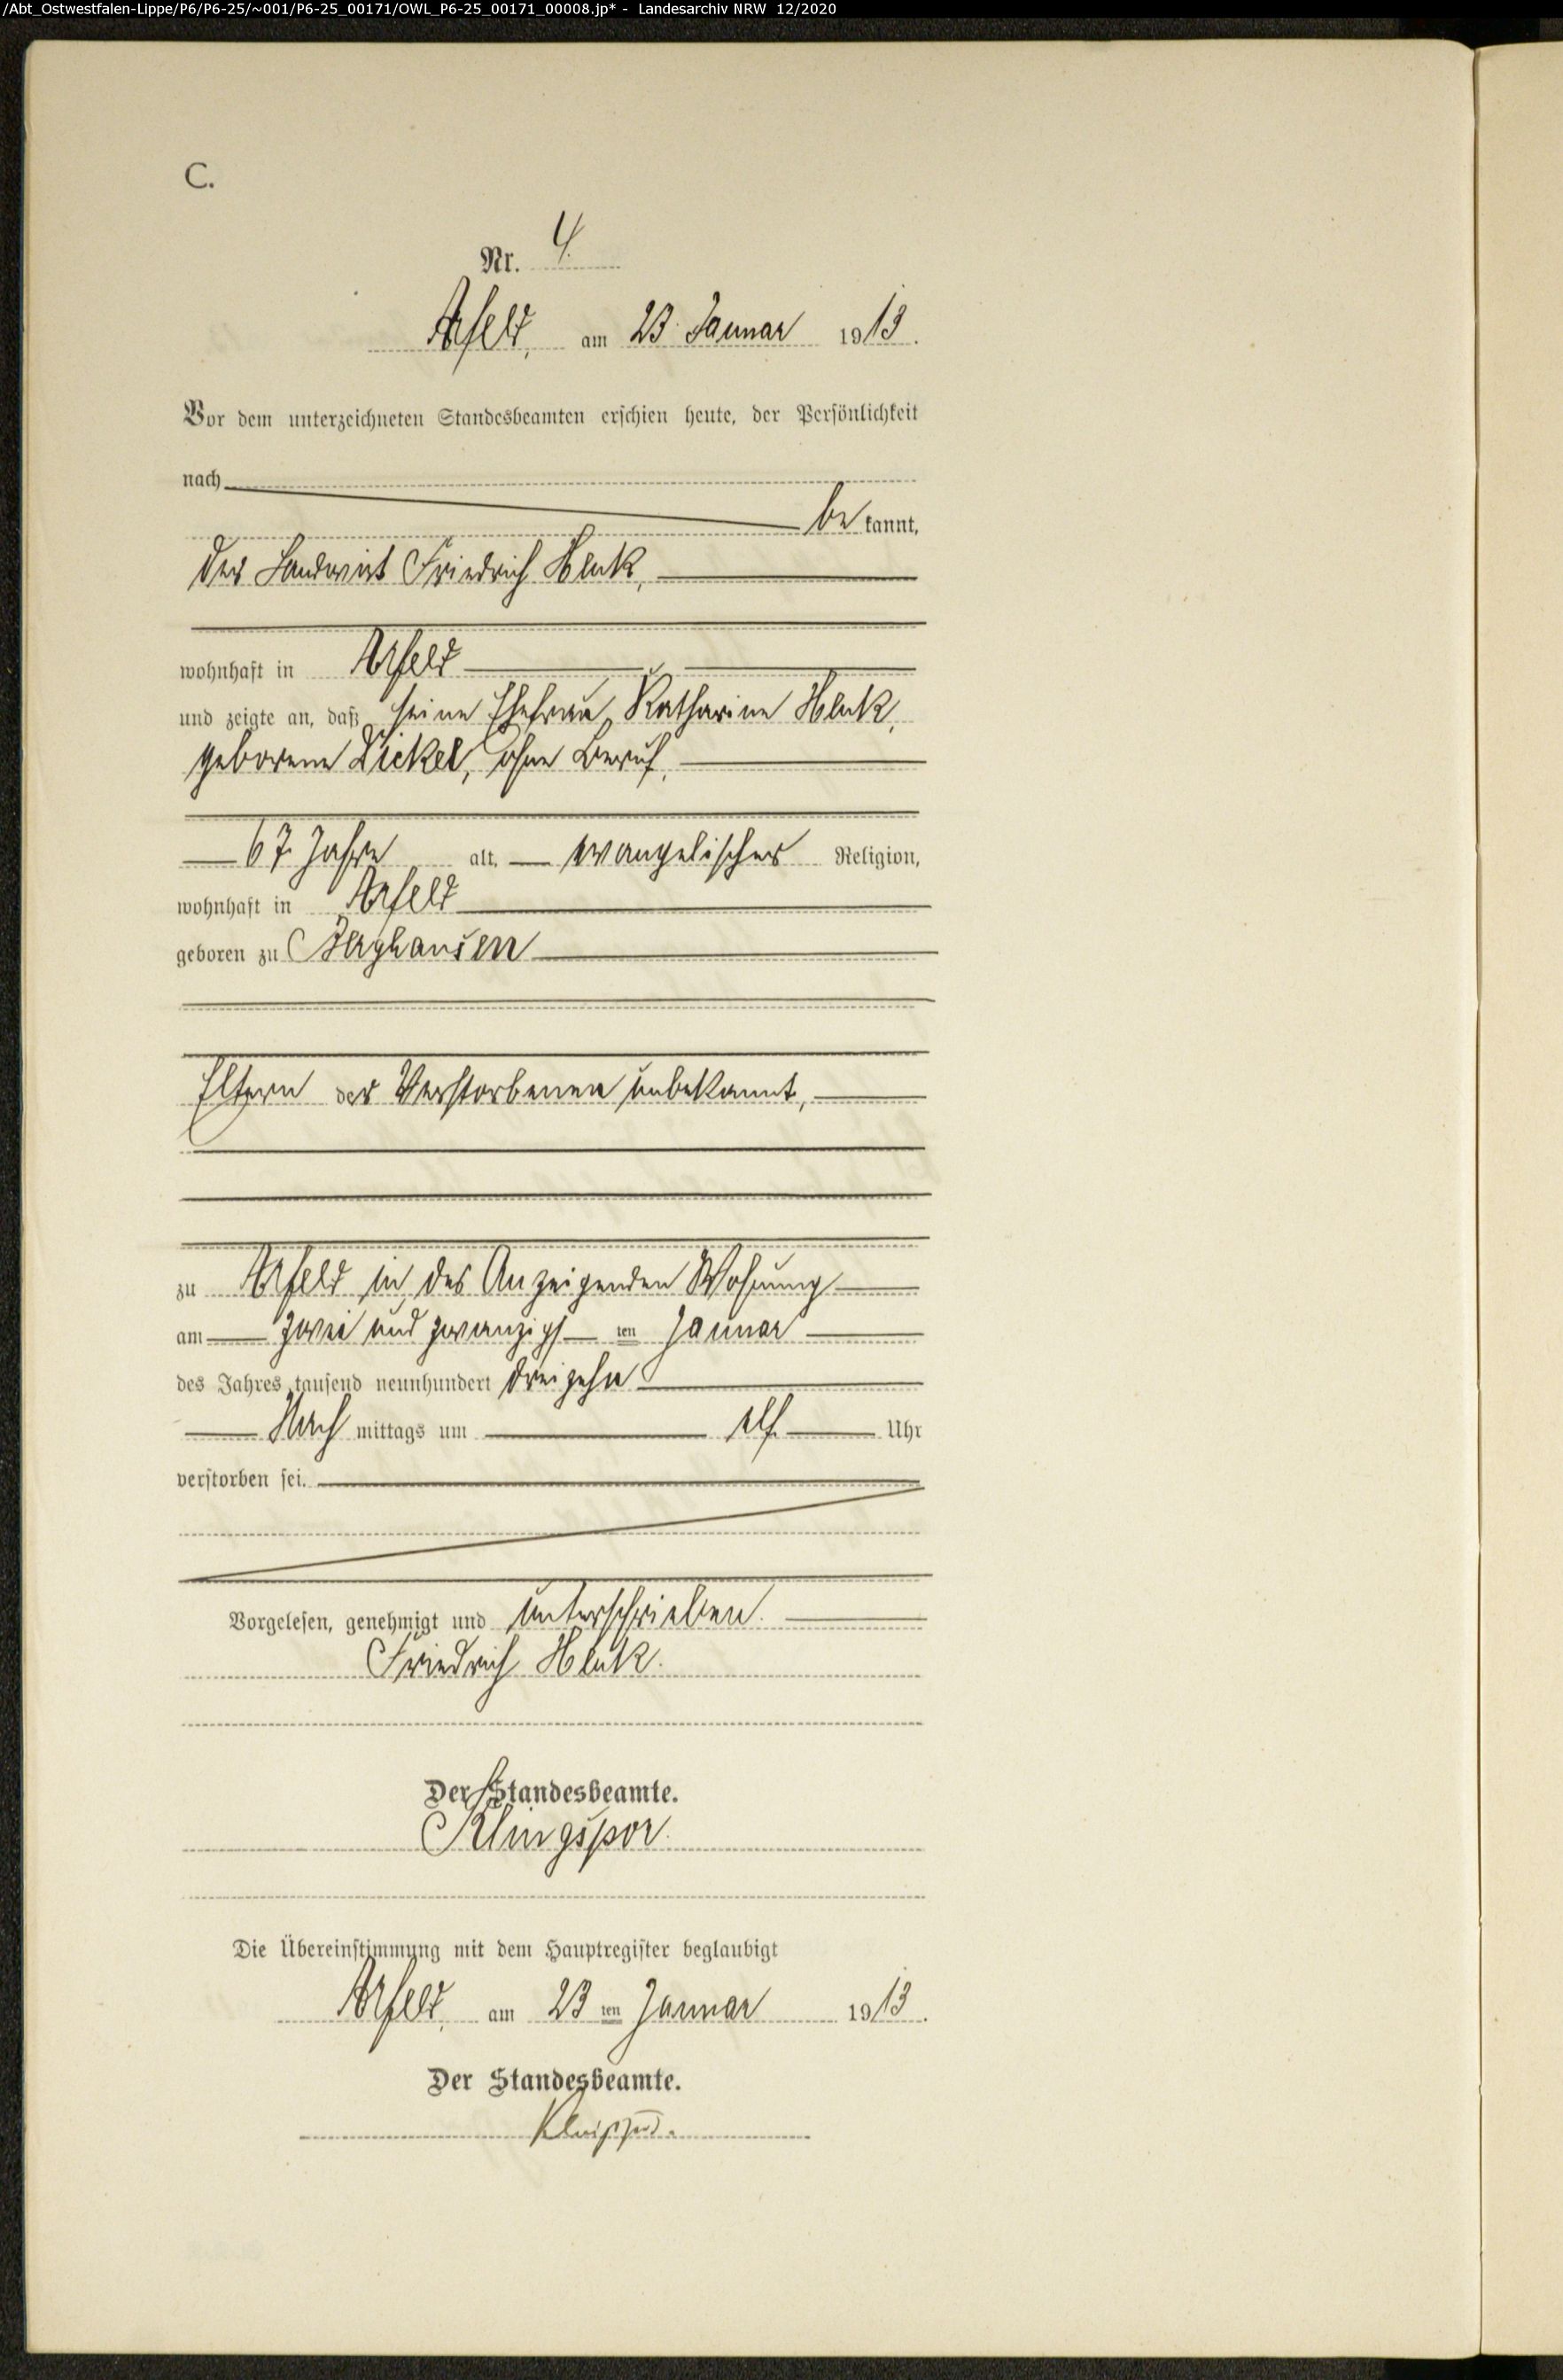 /Abt_Ostwestfalen-Lippe/P6/P6-25/~001/P6-25_00171/OWL_P6-25_00171_00008.jp* - Landesarchiv NRW 12/2020
C.
Nr. 4.
Arfeld, am 23. Januar 1913.
Vor dem unterzeichneten Standesbeamten erschien heute, der Persönlichkeit
nach
be kannt,
der Landwirt Friedrich
wohnhaft in Arfeld
und zeigte an, daß seine Ehefrau Katharine
geborene Dickel, ohne Beruf,
67 Jahre alt, evangelischer Religion,
wohnhaft in Arfeld
geboren zu Berghausen
Eltern der Verstorbenen unbekannt,
zu Arfeld in des Anzeigenden Wohnung
am zwei und zwanzigs ten Januar
des Jahres tausend neunhundert dreizehn
Nach mittags um elf Uhr
verstorben sei.
Vorgelesen, genehmigt und unterschrieben.
Friedrich
Der Standesbeamte.
Klingspor.
Die Übereinstimmung mit dem Hauptregister beglaubigt
Arfeld, am 23 ten Januar 1913.
Der Standesbeamte.